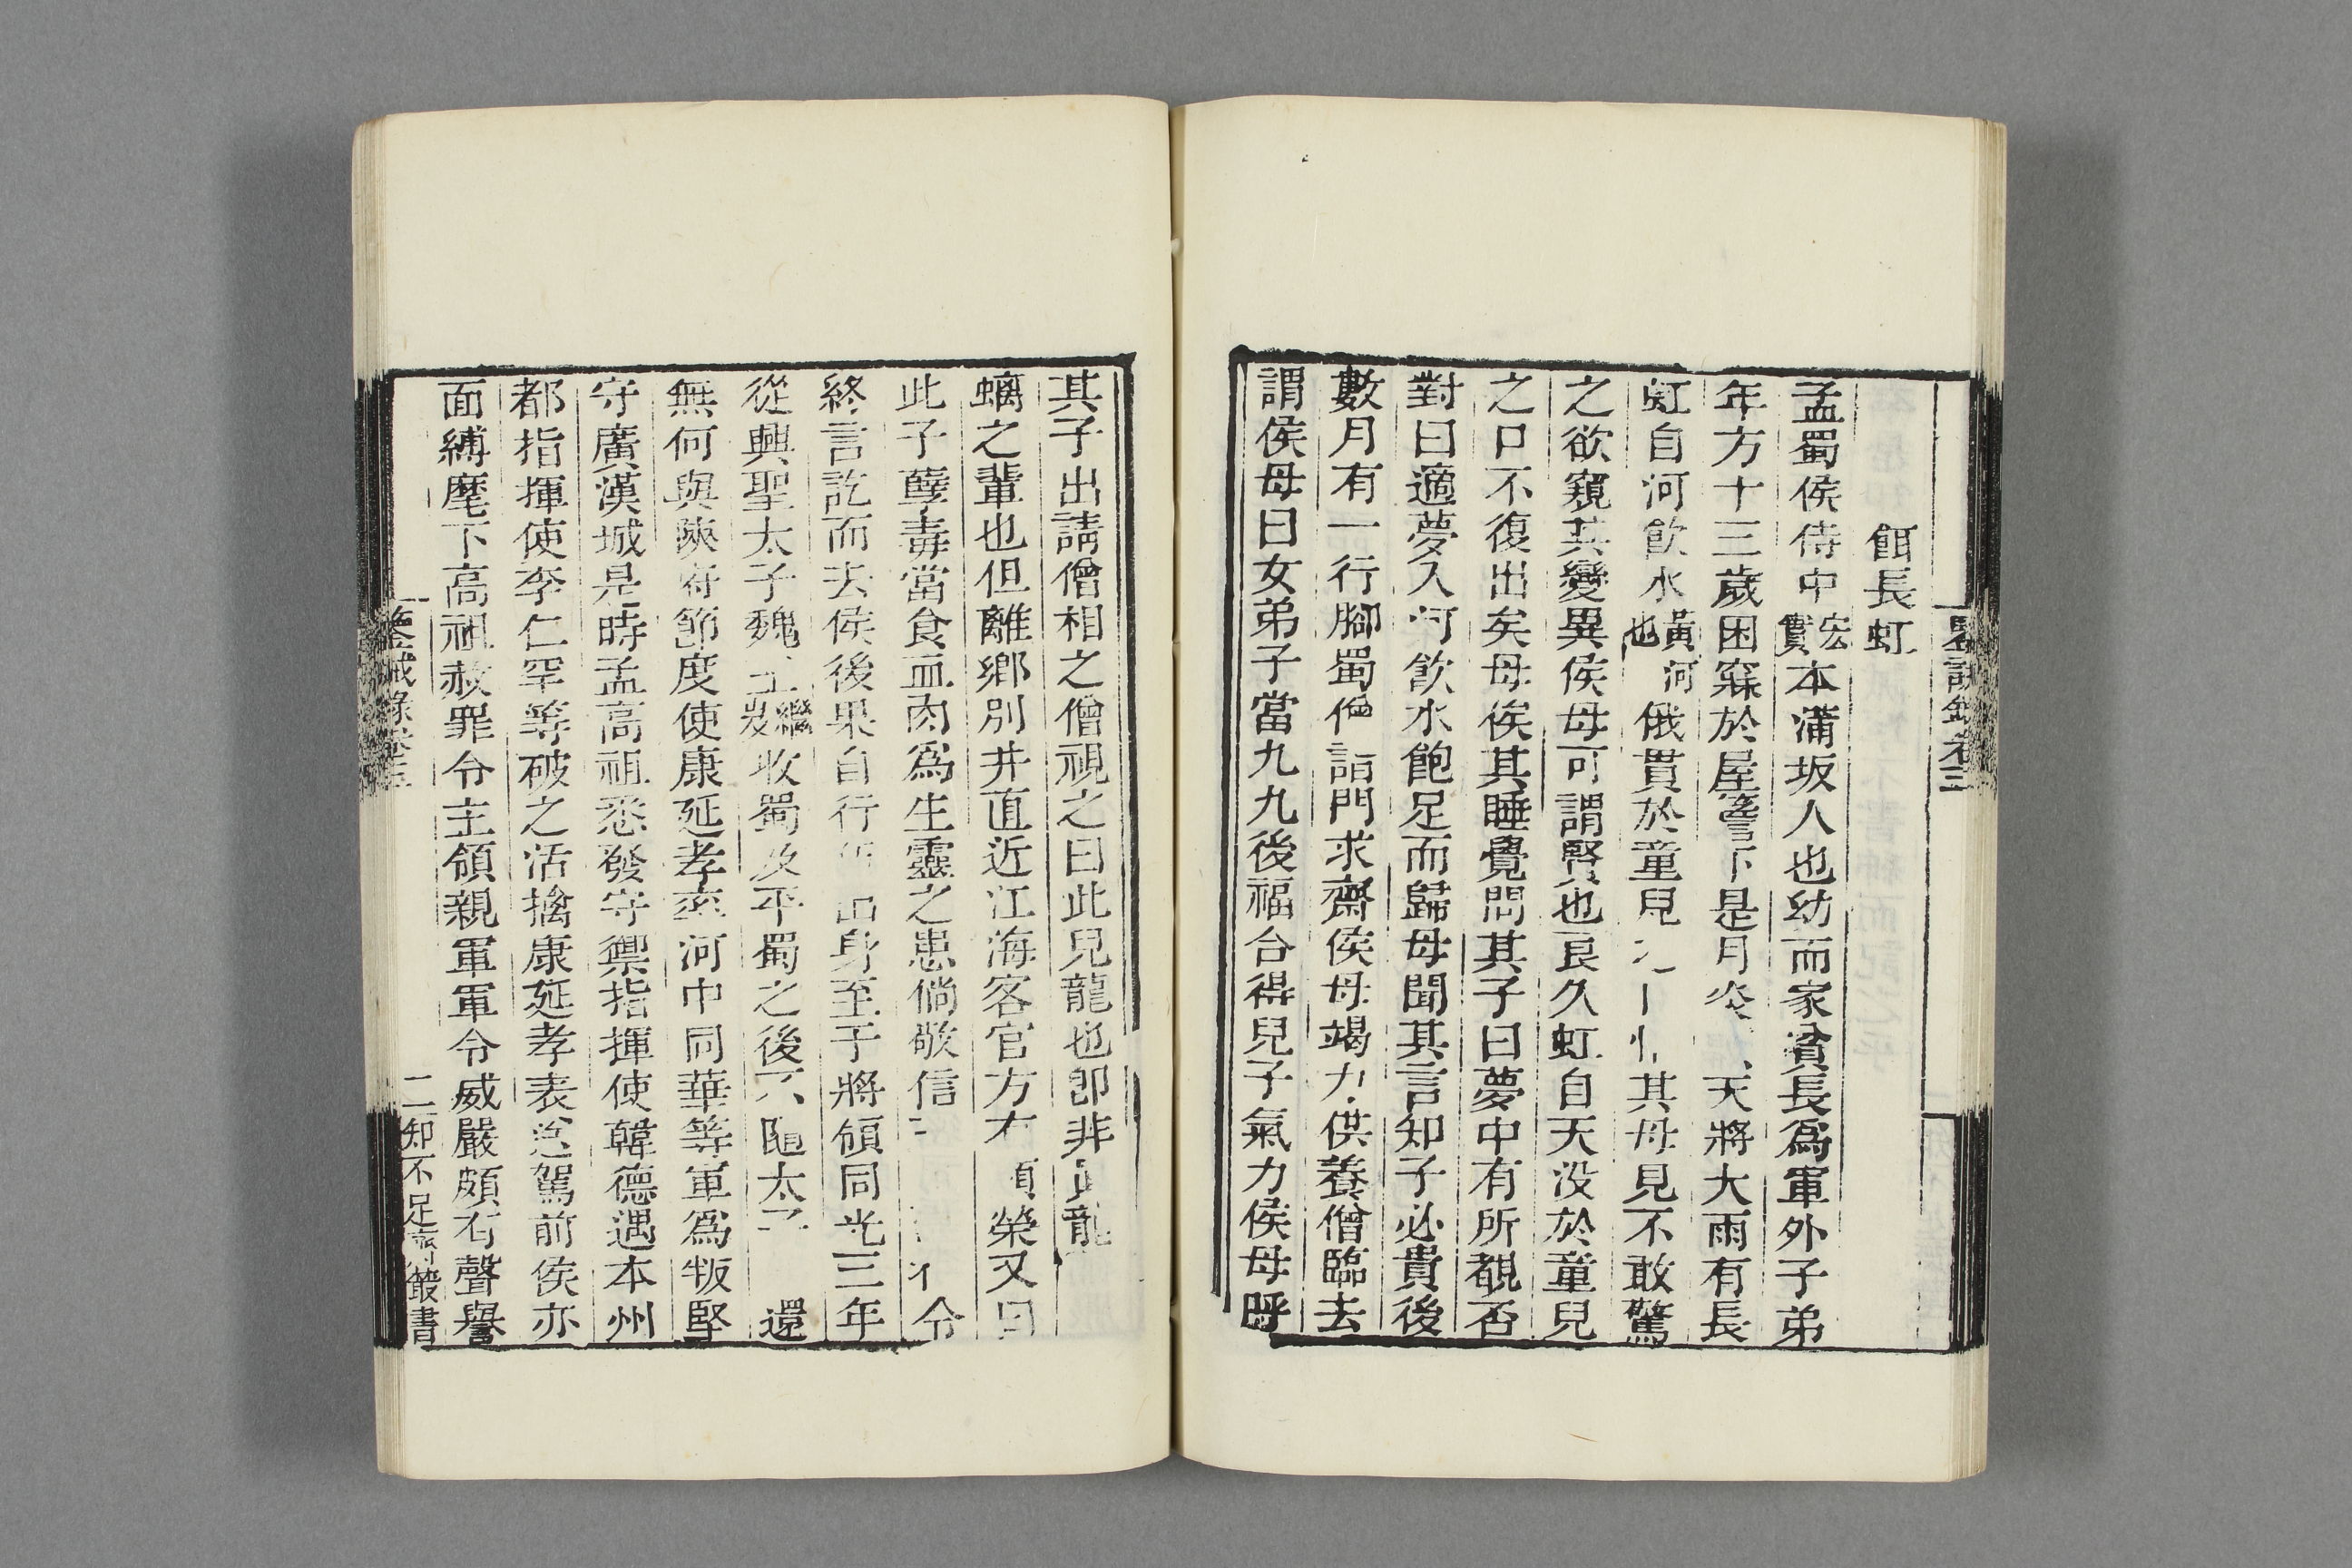 鑒誡錄卷三
餌長虹
孟蜀侯侍中宏實本蒲坂人也幼而家貧長爲軍外子弟
年方十三歲困寐於屋簷下是月炎天將大雨有長
虹自河飮水黃河也俄貫於童兒其母見不敢驚
之欲窺其變異侯母可謂賢也良久虹自天没於童兒
之口不復出矣母俟其睡覺問其子曰夢中有所覩否
對曰適夢入河飮水飽足而歸母聞其言知子必貴後
數月有一行腳蜀僧詣門求齋侯母竭力供養僧臨去
謂侯母曰女弟子當九九後福合得兒子氣力侯母呼
其子出請僧相之僧視之曰此兒龍也卽非眞龍
螭之輩也但離鄉別井直近江海客官方有顯榮又曰
此子孽毒當食血肉爲生靈之患倘敬信令
終言訖而去侯後果自行出身至于將領同光三年
從興聖太子魏王繼岌收蜀及平蜀之後不隨太子還
無何與陝府節度使康延孝率河中同華等軍爲叛堅
守廣漢城是時孟高祖悉發守禦指揮使韓德遇本州
都指揮使李仁罕等破之活擒康延孝表送駕前侯亦
面縛麾下高祖赦罪令主領親軍軍令威嚴頗有聲譽
鑒誡錄卷三
二知不足齋叢書